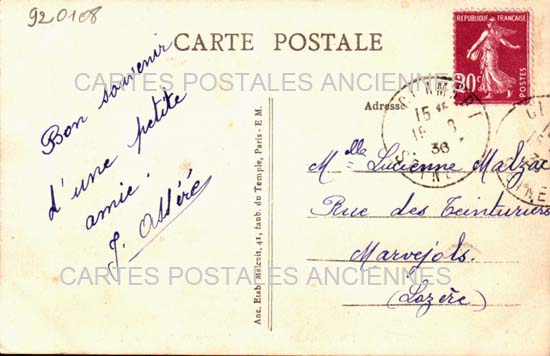 920108
CARTE POSTALE
REPUBLIQUE FRANÇAISE
20c
POSTES
CARTES POSTALES ANCIENNES
Bon souvenir
d'une petite
amie.
Adresse
15
15 8
36
Melle Lucienne Malzac
Rue des Teinturiers
Marvejols.
(Lozère)
Anc. Etab. Malcuit, 41, faub. du Temple, Paris - E M.
CARTES POSTALES ANCIENNES